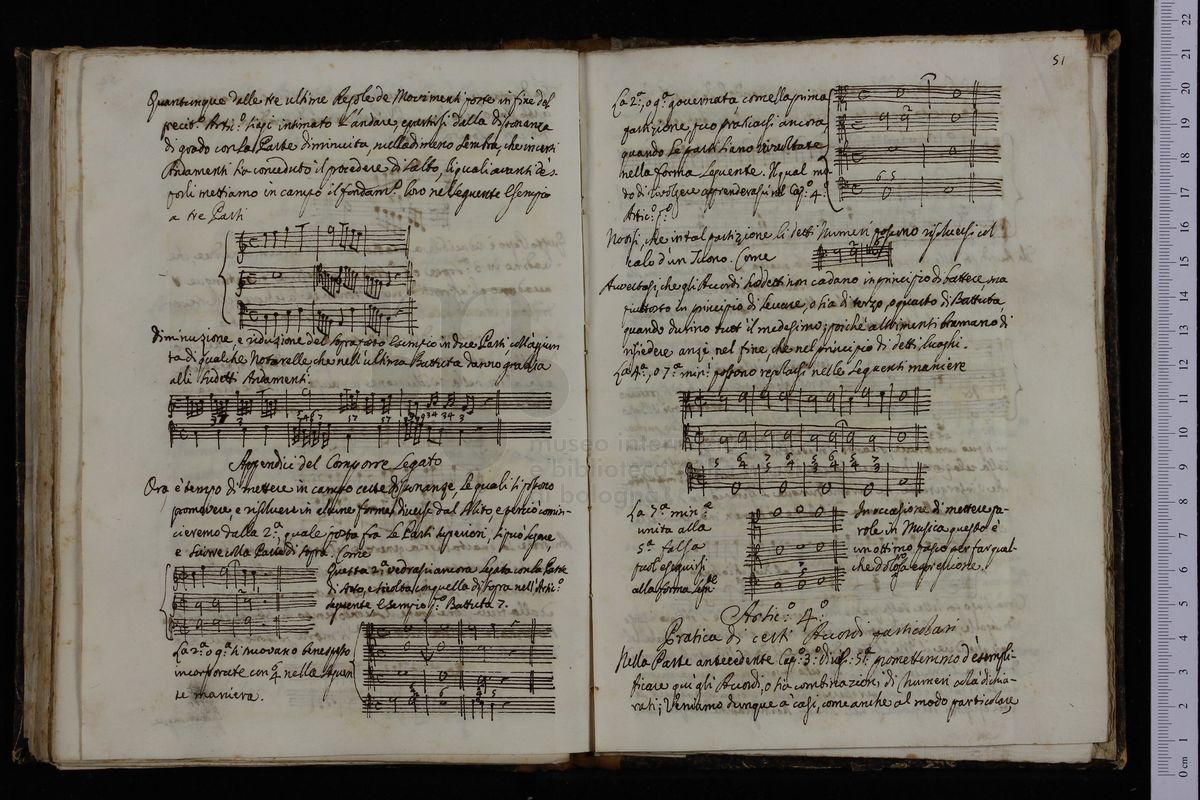 Quantunque dalle tre ultime Regole de Movimenti poste in fine del
preced.e Artic.o siasi intimato l'andare, e partirsi dalla dissonanza
di grado con la Parte diminuita, nulladimeno sembra, che in certi
Andamenti ha conceduto il procedere di salto, li quali avanti d'es-
porli mettiamo in campo il fondam.to loro nel seguente Esempio
a tre Parti
Diminuzione, e riduzione del sopradato Esempio in due Parti, coll'aggiun-
ta di qualche Notarelle, che nell'ultima Battuta danno grazia
alli sudetti Andamenti.
Appendici del Comporre Legato
Ora è tempo di mettere in campo certe dissonanze, le quali si possono
promovere e risolvere in alcune forme diverse dal solito e perciò comin-
cieremo dalla 2.a, quale posta fra le Parti superiori, si può legare,
e sciorre colla Parte di sopra. Come
Questa 2.a vedrassi ancora legata con la Parte
di sotto, e sciolta con quella di sopra nell'Artic.o
seguente, Esempio p.o Battuta 7.
La 2.a o 9.a si trovano benespesso
incorporate con 4 nella seguen-
te maniera.
51
La 2.a, o 9.a governata come sta prima
partizione, può praticarsi ancora,
quando le parti siano rivoltate
nella forma seguente. Il qual mo-
do di rivolgere apprenderassi nel Cap.o 4.o
Artic.o p.o
Notisi, che in tal partizione li detti Numeri possono risolversi col
calo d'un Tuono. Come
Avvertasi, che gli Accordi sudetti non cadano in principio di battere, ma
piuttosto in principio di levare, o sia di terzo, o quarto di Battuta,
quando durino tutt'il medesimo; poiché altrimenti bramano di
risiedere anzi nel fine, che nel principio di detti luoghi.
La 4.a, o 7.a min.e possono replicarsi nelle seguenti maniere
La 7.a min.e
unita alla
5.a falsa
puol eseguirsi
alla forma seg.te
In occasione di mettere pa-
role in Musica questo è
un ottimo passo per far qual-
che dolorosa espressione.
Artic.o 4.o
Pratica di certi Accordi particolari
Nella Parte antecedente Cap.o 3.o promettemmo d'esempli-
ficare qui gli Accordi, o sia combinazioni di Numeri colà dichia-
rati; Veniamo dunque a' casi, come anche al modo particolare,
museo inter
e biblioteca
di bologna